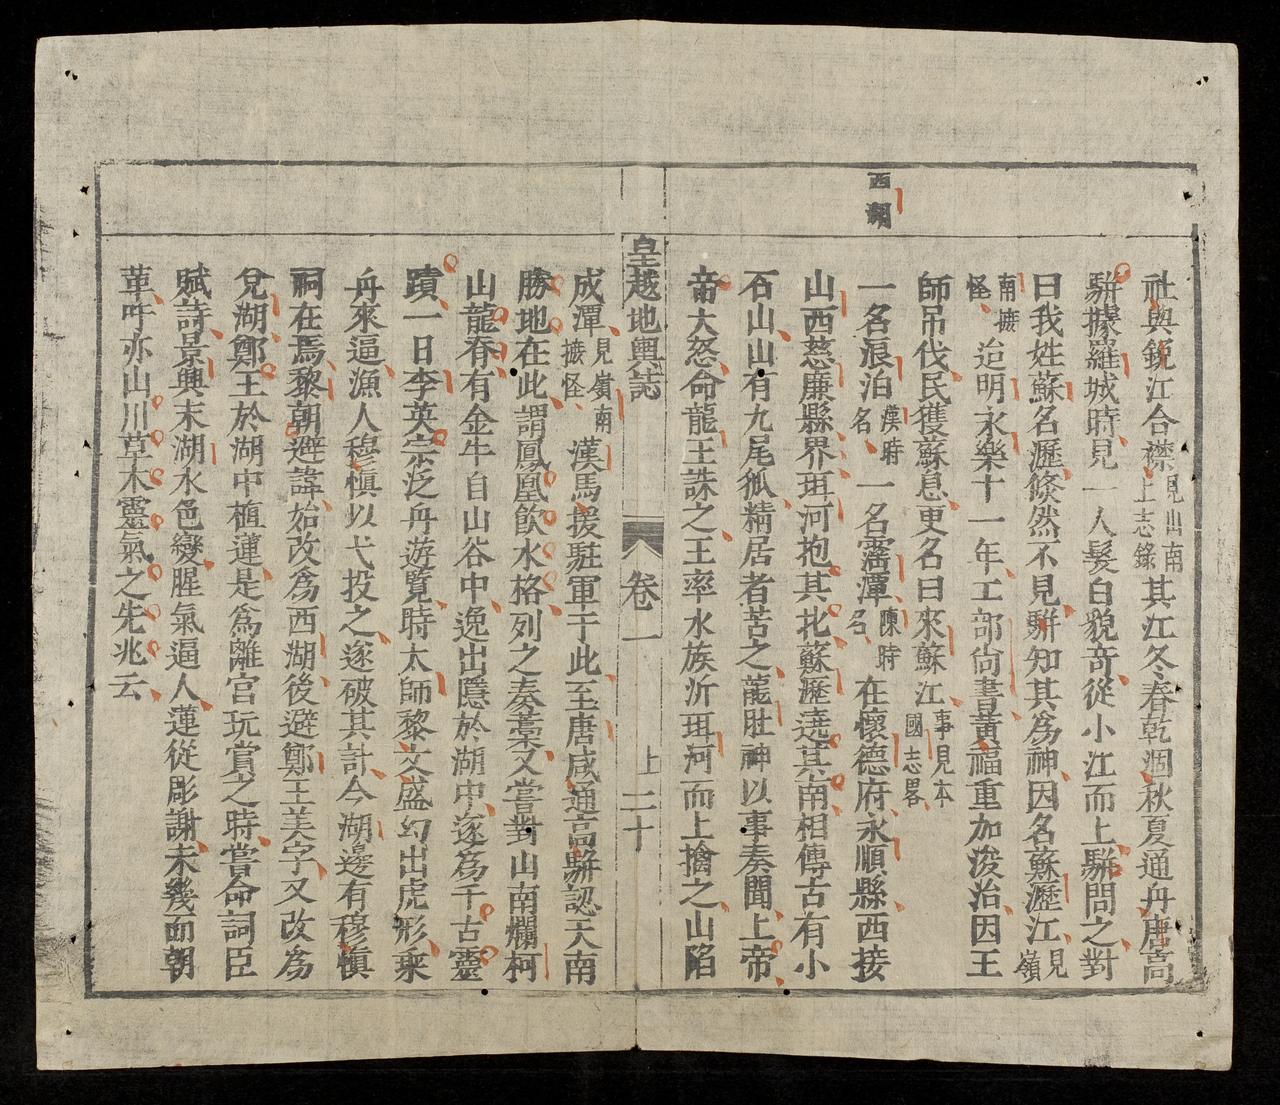 西湖
社與銳江合襟見山南上志錄其江冬春乾涸秋夏通舟唐高
駢據羅城時見一人髮白貌奇從小江而上駢問之對
曰我姓蘇名瀝倏然不見駢知其爲神因名蘇瀝江見嶺
南摭怪迨明永樂十一年工部尙書黃福重加浚治因王
師吊伐民獲蘇息更名曰來蘇江事見本國志畧
一名浪泊漢時名一名霪潭陳時名在懷德府永順縣西接
山西慈廉縣界珥河抱其北蘇瀝遶其南相傳古有小
石山山有九尾狐精居者苦之龍肚神以事奏聞上帝
帝大怒命龍王誅之王率水族泝珥河而上擒之山陷
皇越地輿誌 卷一 上 二十
成潭見嶺南摭怪漢馬援駐軍于此至唐咸通高駢認天南
勝地在此謂鳳凰飮水格列之奏藁又嘗對山南爛柯
山龍脊有金牛自山谷中逸出隱於湖中遂爲千古靈
蹟一日李英宗泛舟遊覽時太師黎文盛幻出虎形乘
舟來逼漁人穆愼以弋投之遂破其計今湖邊有穆愼
祠在焉黎朝避諱始改爲西湖後避鄭王美字又改爲
兌湖鄭王於湖中植蓮是爲離宮玩賞之時嘗命詞臣
賦詩景興末湖水色變腥氣逼人蓮從彫謝未幾而朝
革吁亦山川草木靈氣之先兆云